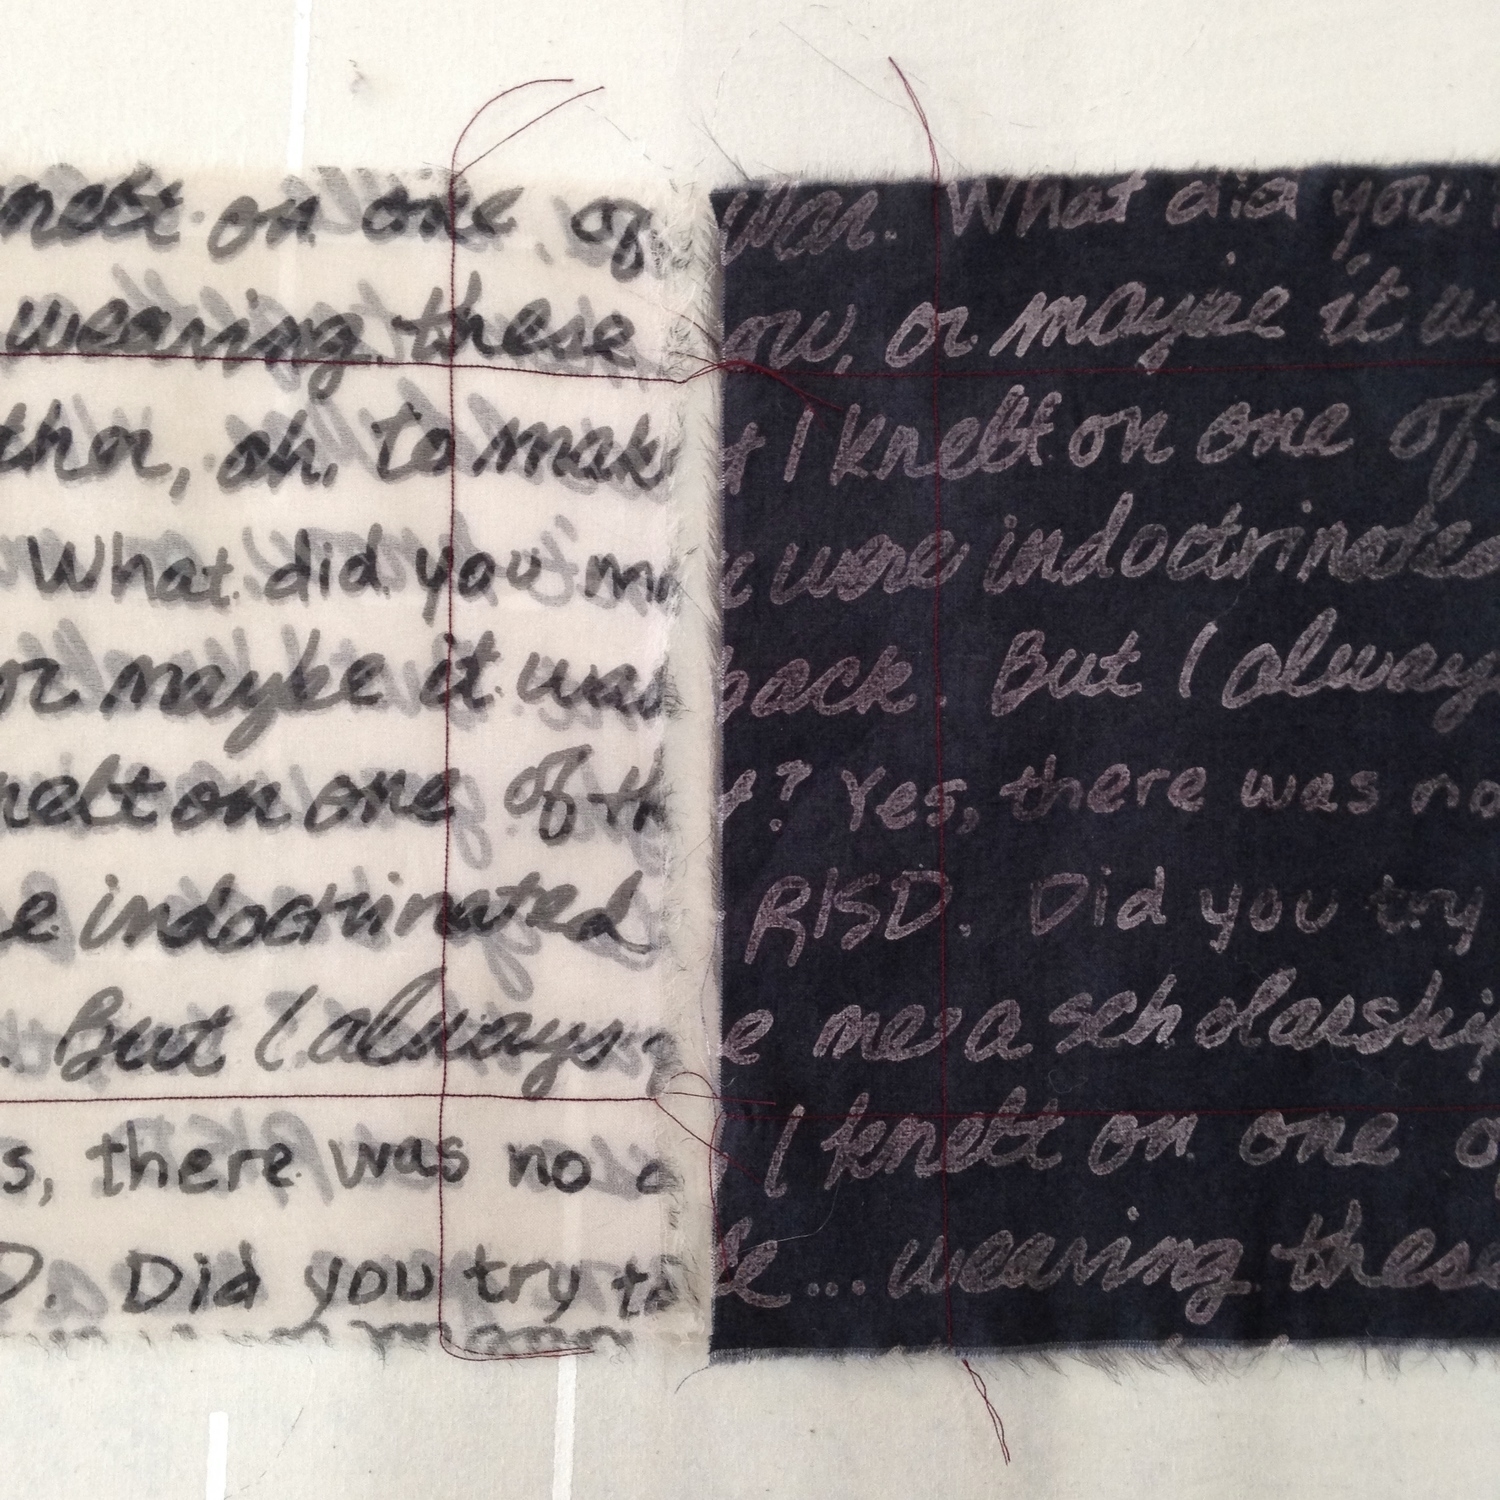 knelt on one of
wearing these
ther, oh, to mak
What did you m
or maybe it was
nelt on one of th
e indoctrinated
. But I always
s, there was no
D. Did you try to
war. What did you
ow, or maybe it w
I knelt on one of
were indoctrinated
back. But I always
? Yes, there was no
RISD. Did you try
e me a scholarship
I knelt on one o
... wearing these